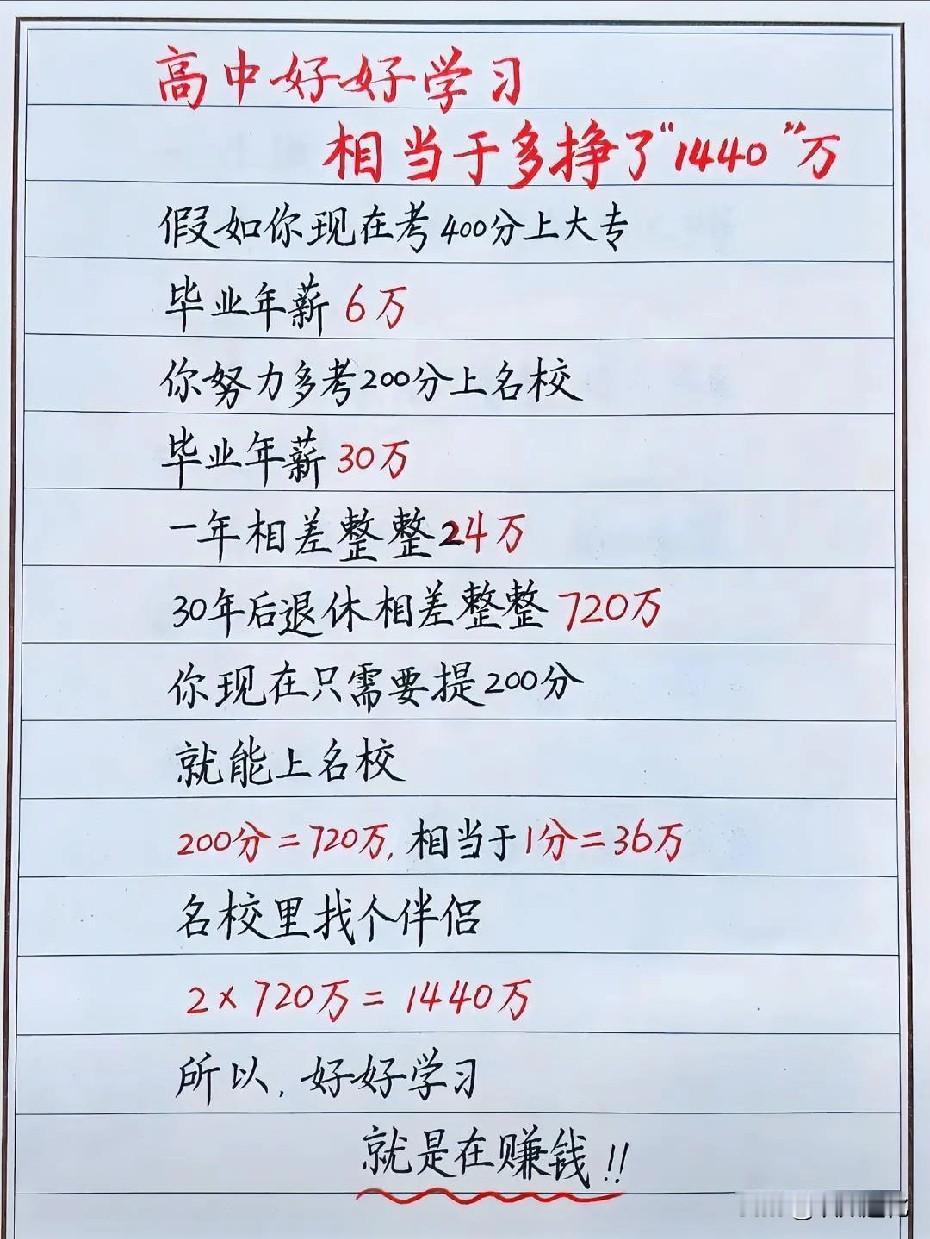 高中好好学习
相当于多挣了“1440”万
假如你现在考400分上大专
毕业年薪6万
你努力多考200分上名校
毕业年薪30万
一年相差整整24万
30年后退休相差整整720万
你现在只需要提200分
就能上名校
200分=720万,相当于1分=36万
名校里找个伴侣
2×720万=1440万
所以,好好学习
就是在赚钱!!